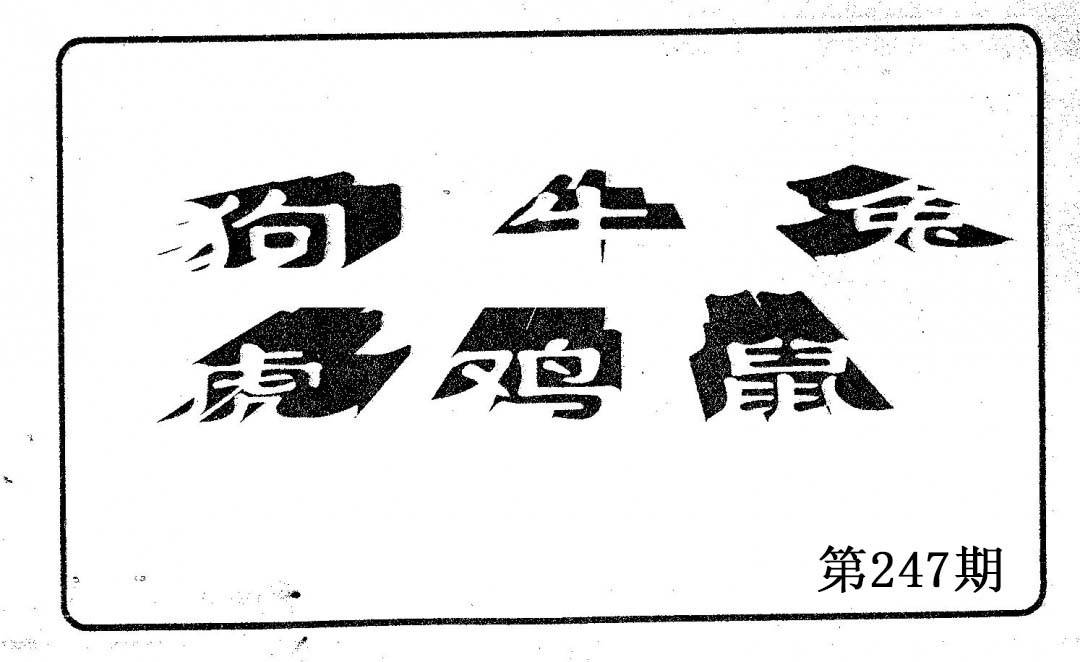 狗 牛 兔
虎 鸡 鼠
第247期